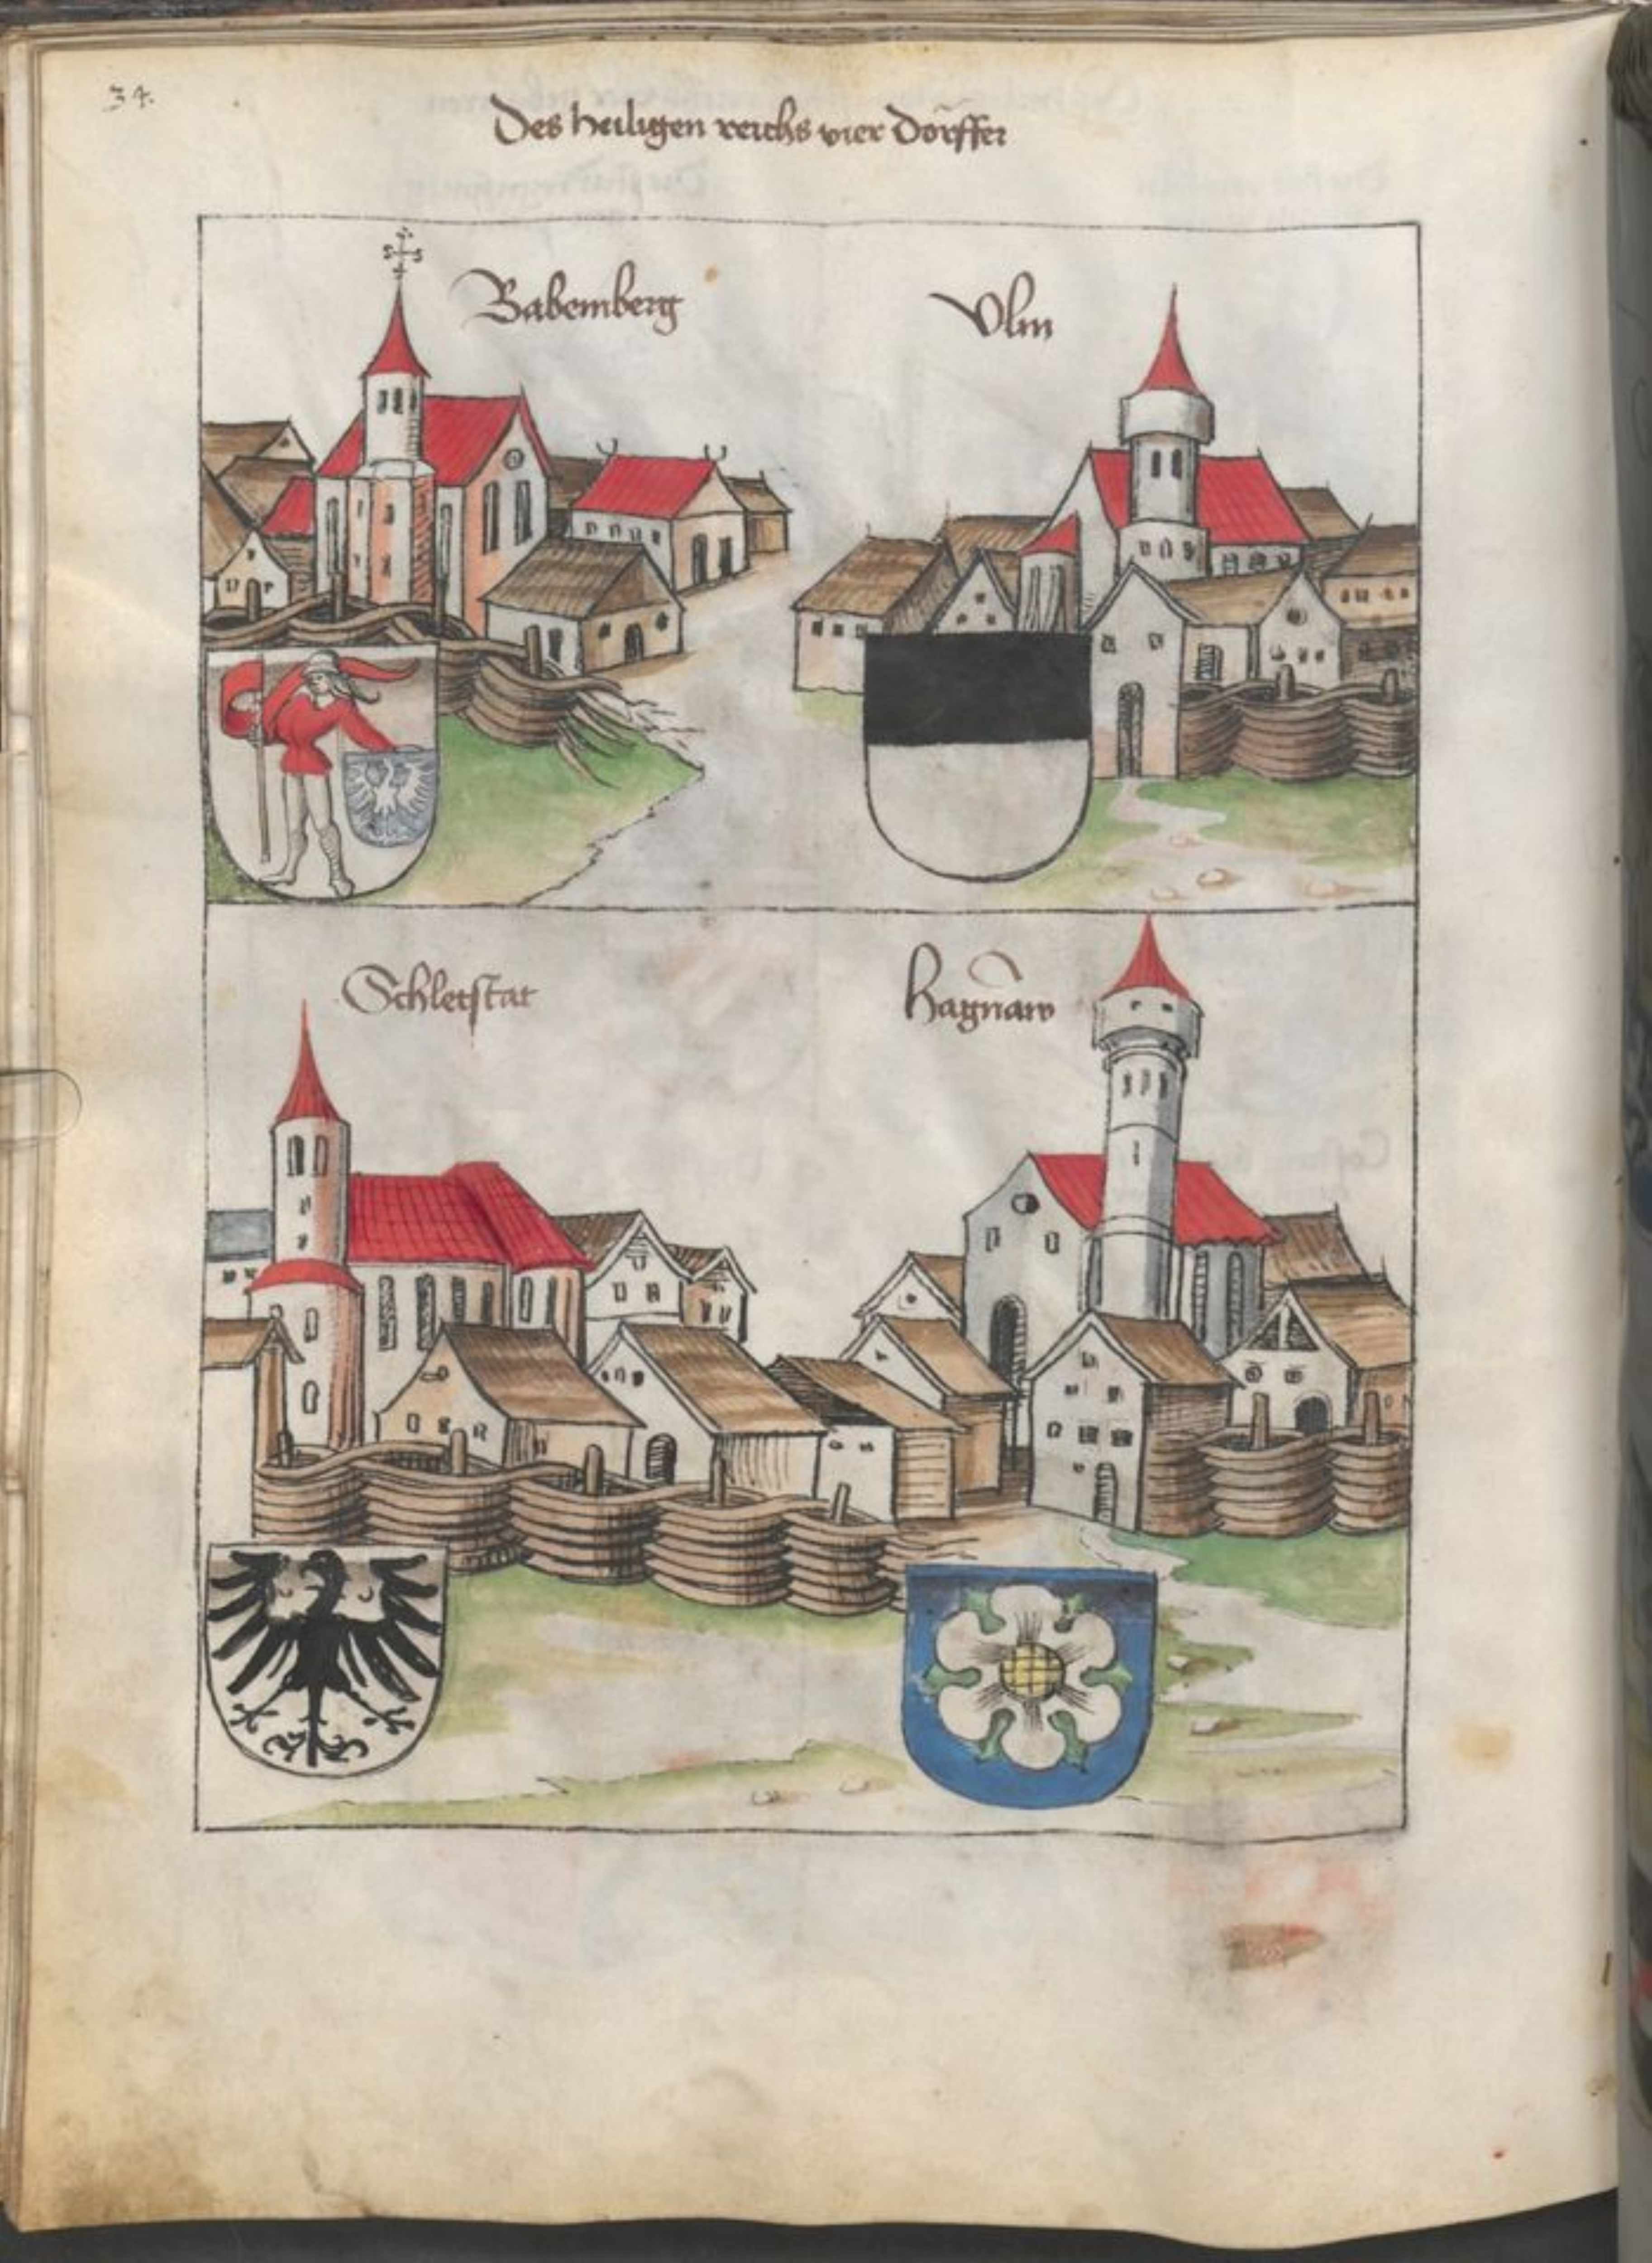 34.
Des heiligen reichs vier Dörffer
Babemberg
Vlm
Schletstat
hagnaw